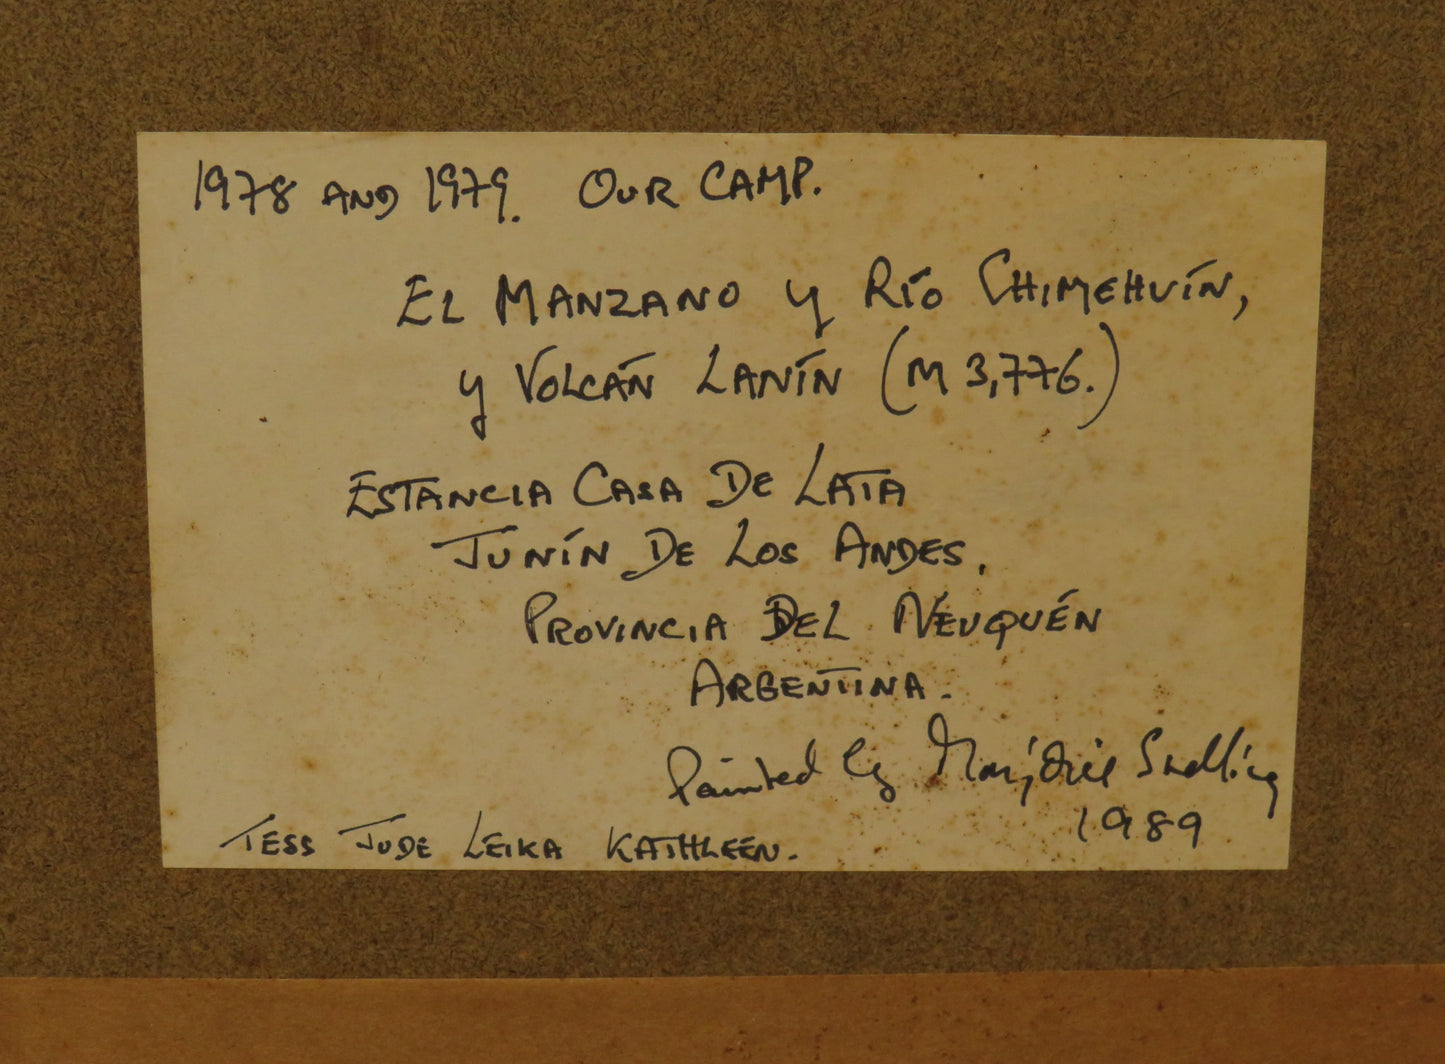 1978 AND 1979. OUR CAMP.
EL MANZANO y RÍO CHIMEHUÍN,
y VOLCÁN LANÍN (M 3,776.)
ESTANCIA CASA DE LATA
JUNÍN DE LOS ANDES,
PROVINCIA DEL NEUQUÉN
ARGENTINA.
Painted by Marjorie Snelling
1989
TESS JUDE LEIKA KATHLEEN.